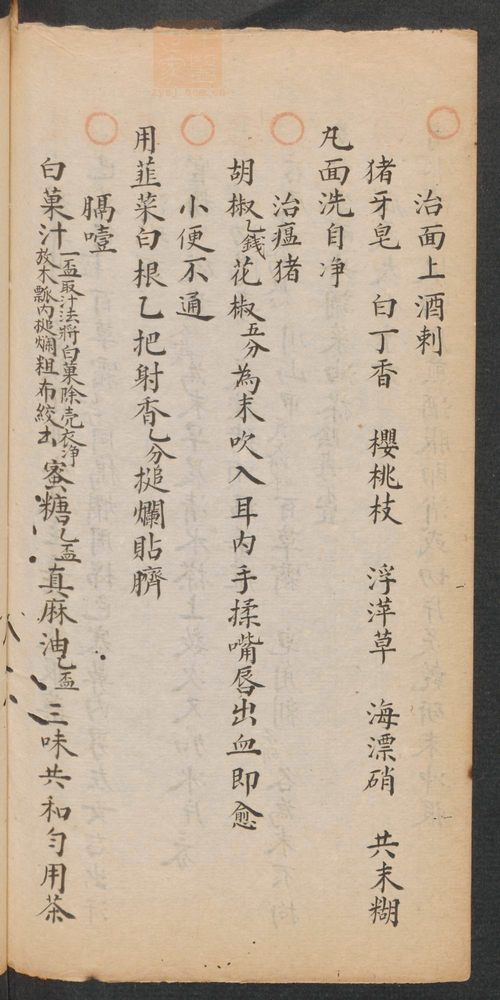 治面上酒刺
猪牙皂 白丁香 櫻桃枝 浮萍草 海漂硝 共末糊
丸面洗自净
治瘟猪
胡椒乙錢花椒五分為末吹入耳内手揉嘴唇出血即愈
小便不通
用韮菜白根乙把射香乙分搥爛貼臍
膈噎
白菓汁一盃取汁法將白菓除壳衣净放木瓢内搥爛粗布絞出蜜糖乙盃真麻油乙盃三味共和匀用茶